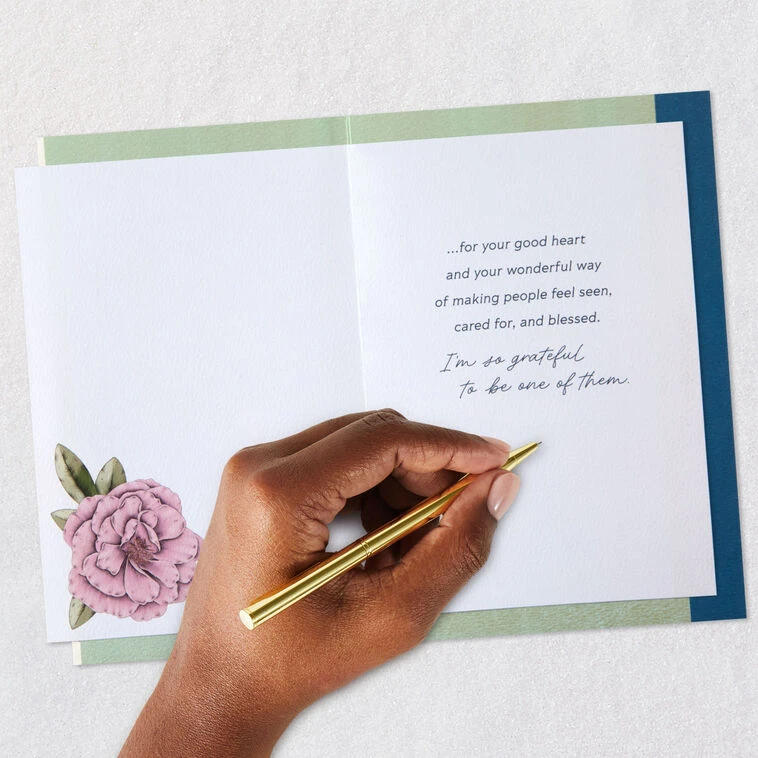 ...for your good heart
and your wonderful way
of making people feel seen,
cared for, and blessed.
I'm so grateful
to be one of them.